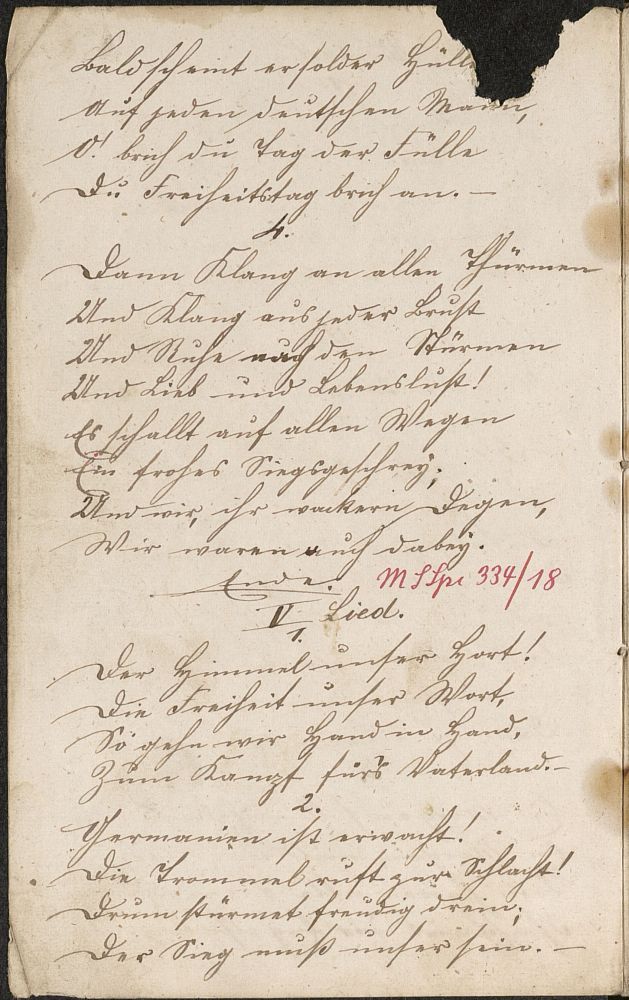 Bald scheint er solder Hülle
Auf jeden deutschen Mann,
O! brich du Tag der Fülle
Du Freiheitstag brich an. –
4.
Dann Klang an allen Thürmen
Und Klang aus jeder Brust
Und Ruhe nach den Stürmen
Und Lieb und Lebenslust!
Es schallt auf allen Wegen
Ein frohes Siegsgeschrey;
Und wir, ihr wackern Degen,
Wir waren auch dabey.
Ende. 334/18
V Lied.
1.
Der Himmel unser Hort!
Die Freiheit unser Wort,
So gehn wir Hand in Hand,
Zum Kampf für's Vaterland. –
2.
Germanien ist erwacht!
Die Trommel ruft zur Schlacht!
Drum stürmet freudig drein;
Der Sieg muß unser sein. –